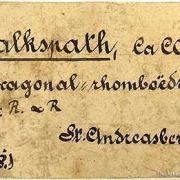 alkspath, Ca CO
xagonal-rhomboëd
R. & R
St. Andreasber